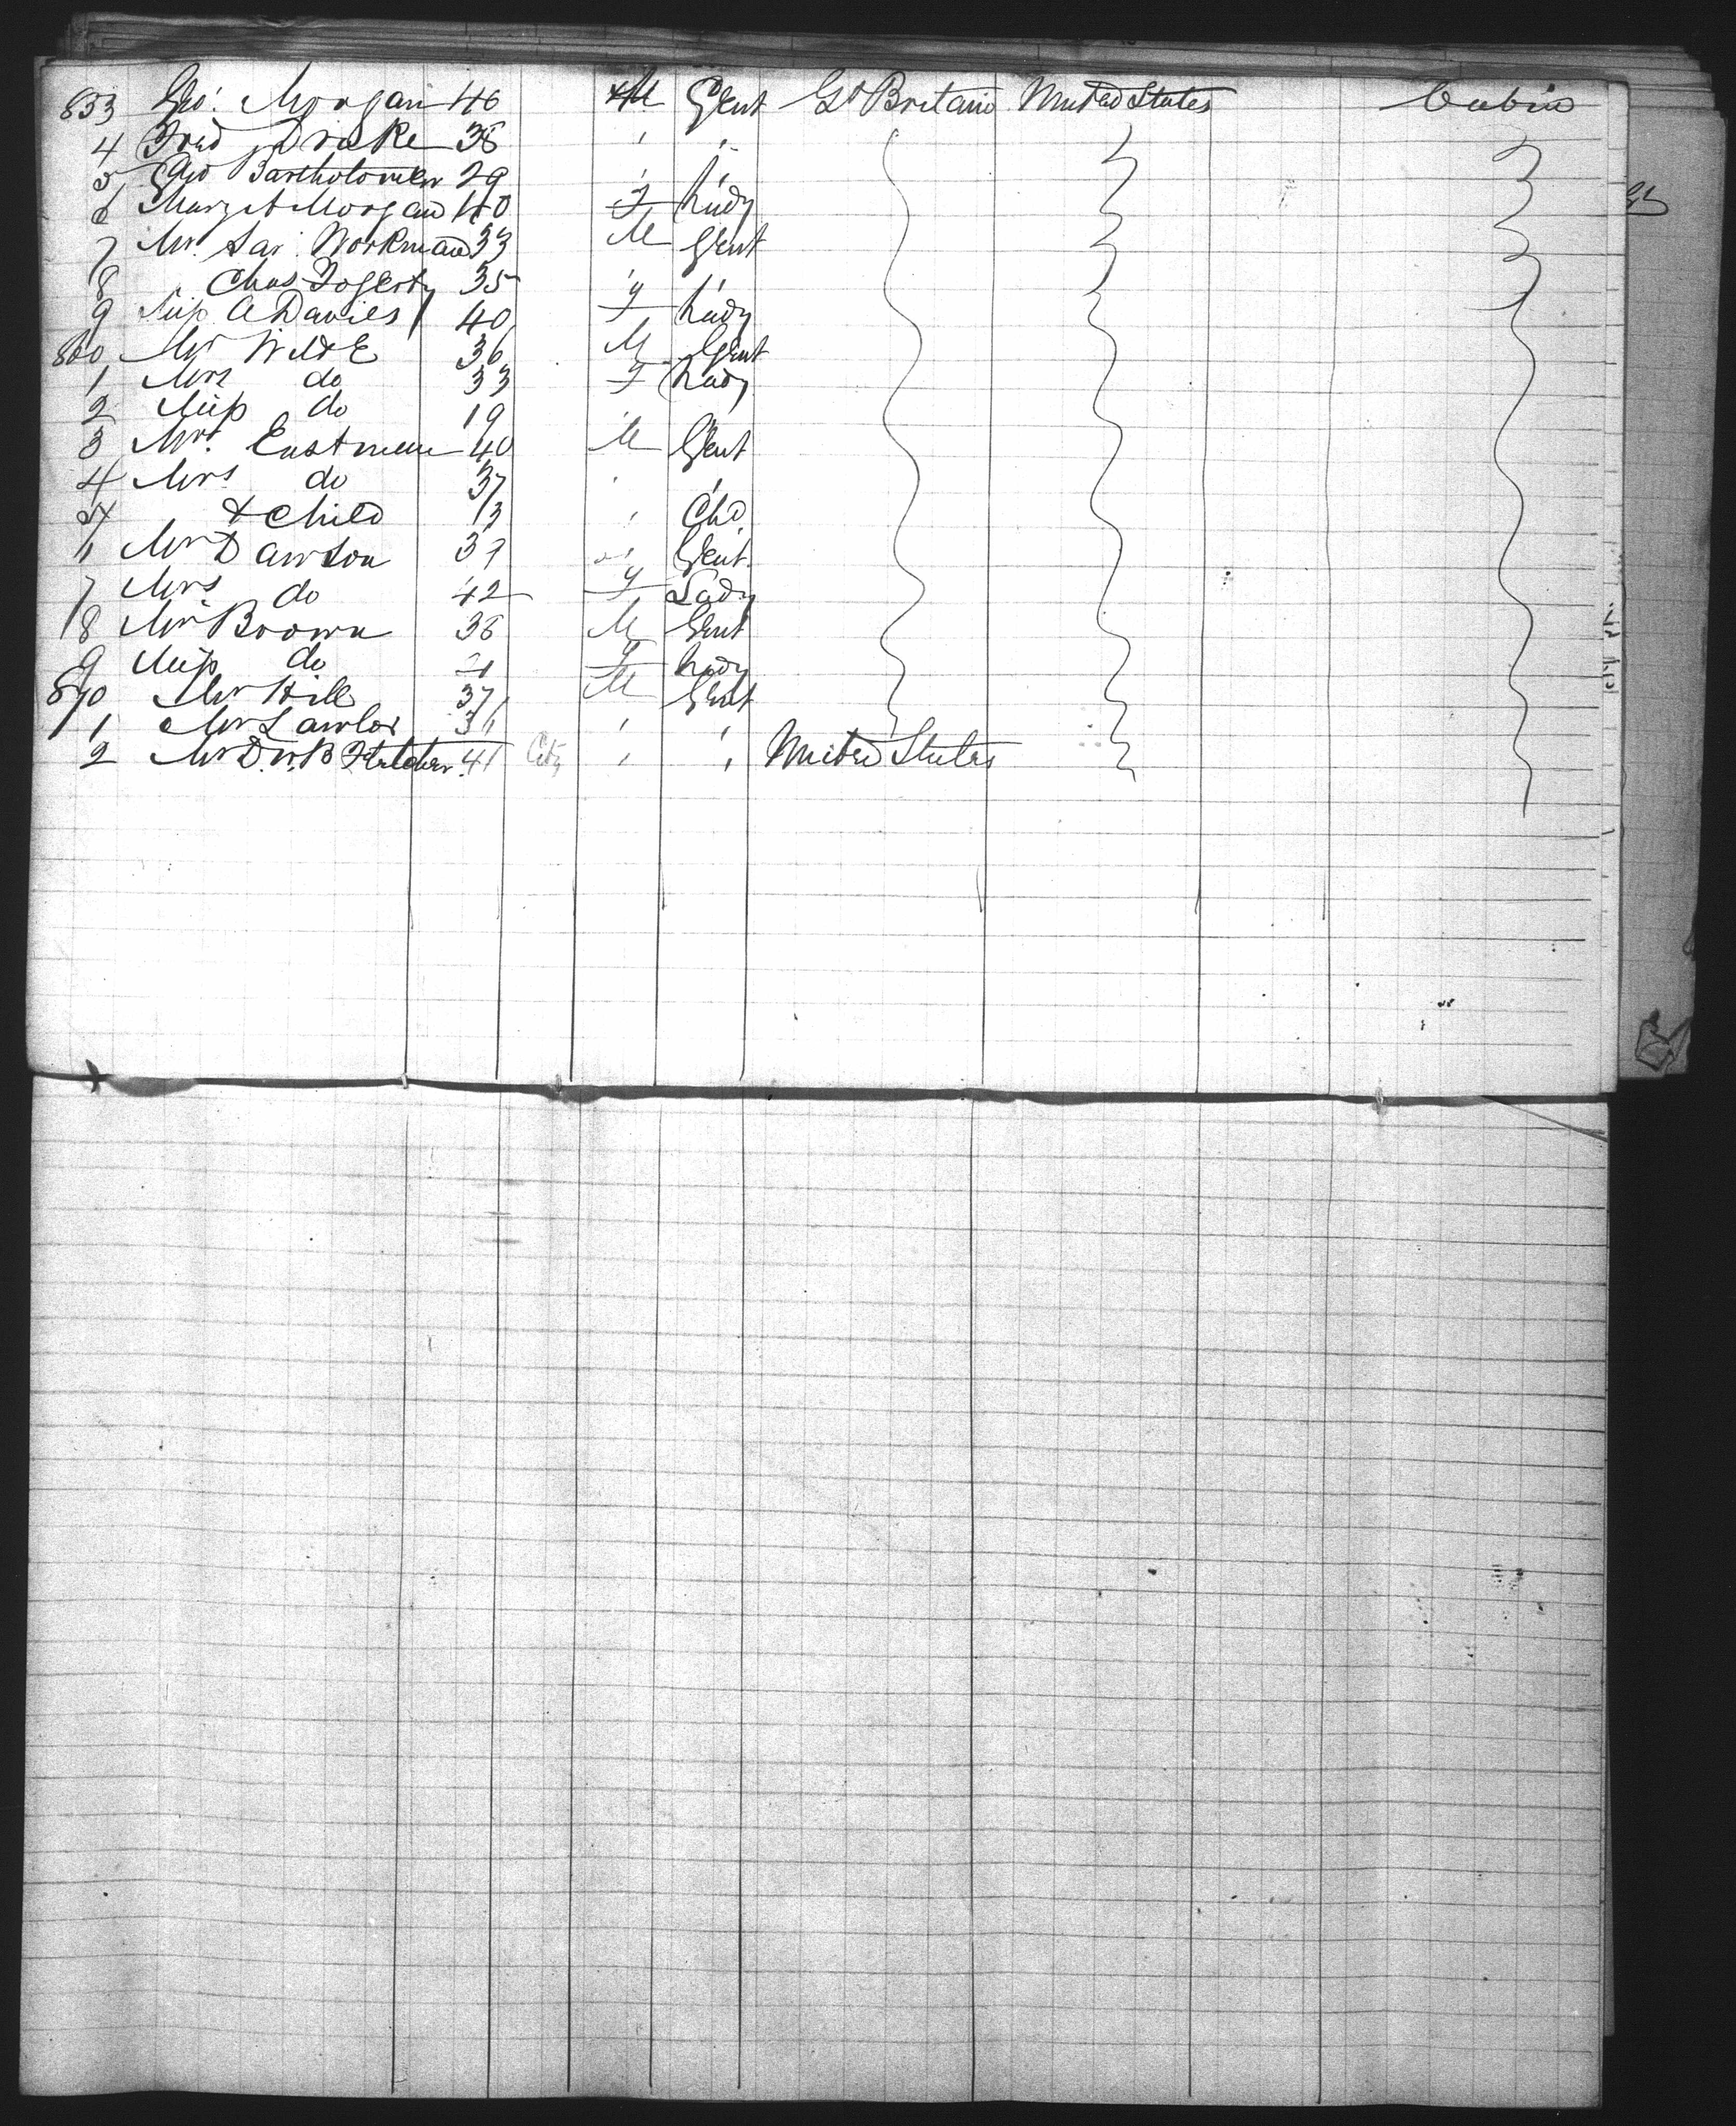 853 Geo: Morgan 46 M Gent Gt Britain United States Cabin
4 Fred Drake 38 " "
5 Geo Bartholomew 29 " "
6 Margt Morgan 40 F Lady
7 Mr. Jas: Workman 33 M Gent
8 Chas Fogerty 35 " "
9 Miss A Davies 40 F Lady
860 Mr Wilde 36 M Gent
1 Mrs do 33 F Lady
2 Miss do 19
3 Mr. Eastman 40 M Gent
4 Mrs do 37 " "
5 & Child 13 " Chd.
6 Mr Dawson 39 " Gent.
7 Mrs do 42 F Lady
8 Mr Brown 38 M Gent
9 Miss do F Lady
870 Mr Hill 37 M Gent
1 Mr Lawlor 36 " "
2 Mr D. W. B Fletcher. 41 City " " United States